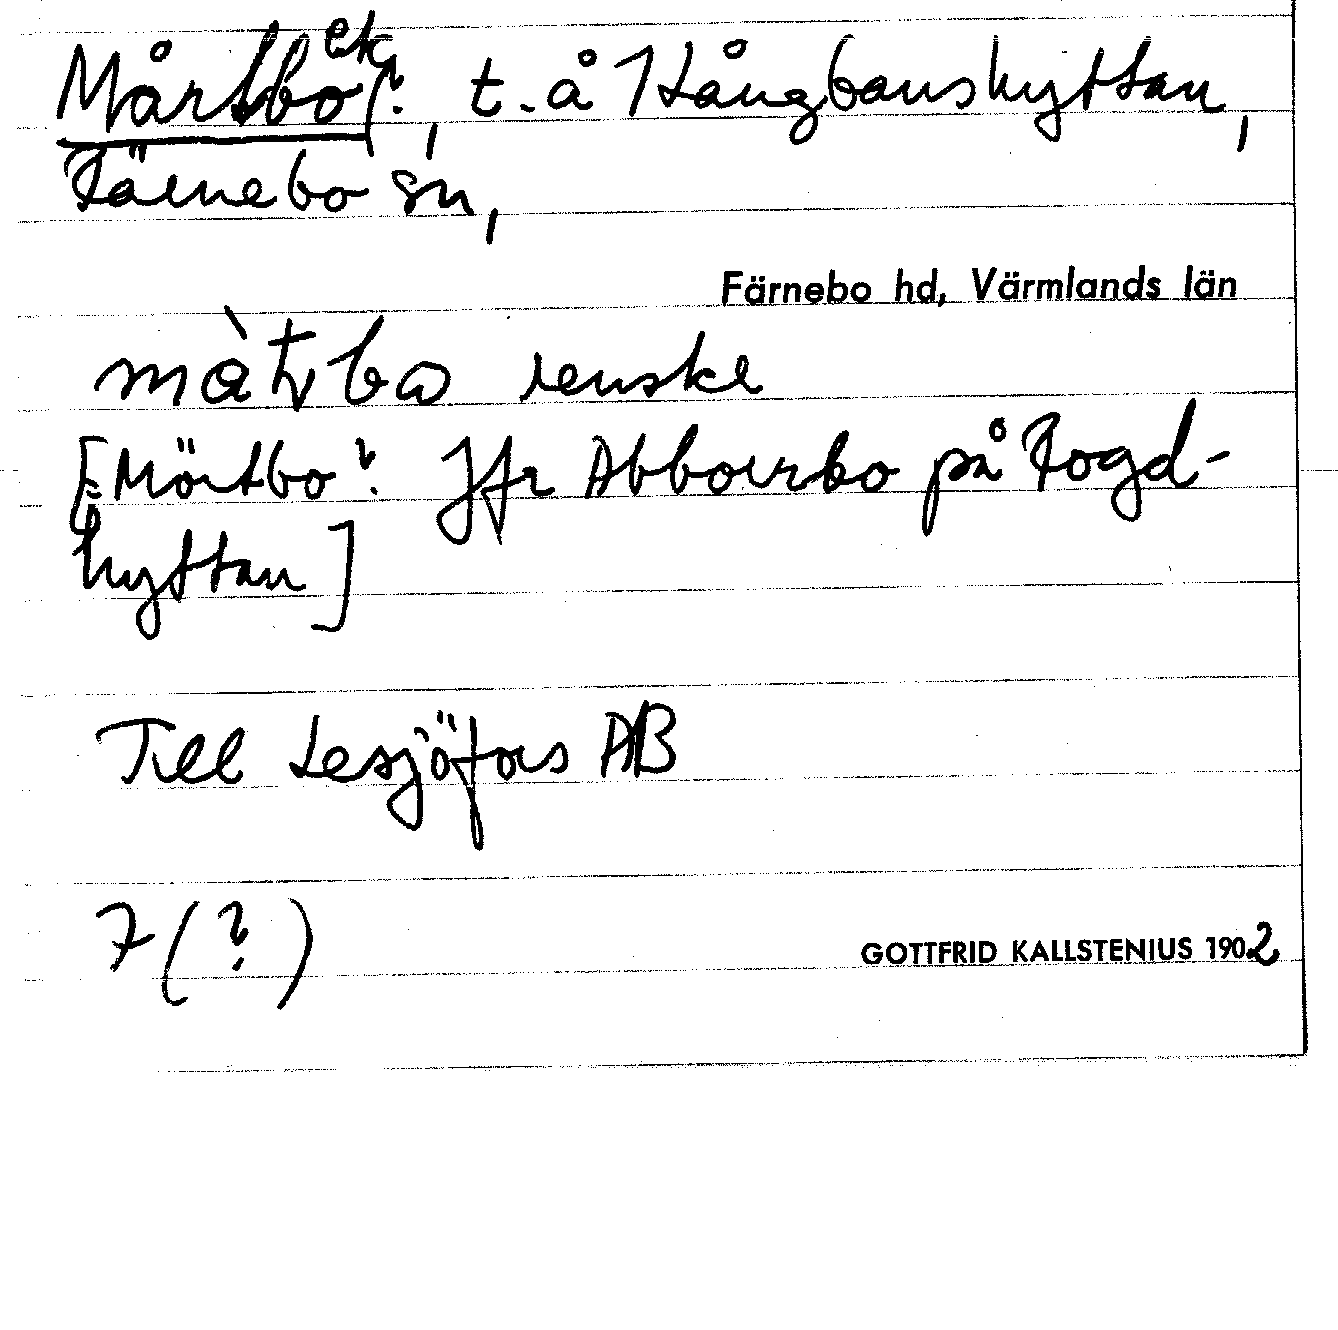 Mårtbo ek?, t. å 1 Långbanshyttan,
Färnebo sn,
Färnebo hd, Värmlands län
renske
[Mörtbo? Jfr Abborrbo på Fogd-
hyttan]
Till Lesjöfors AB
7 (?)
GOTTFRID KALLSTENIUS 1902